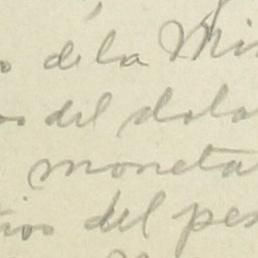 de la Min
os del dola
moneta
rios del pes